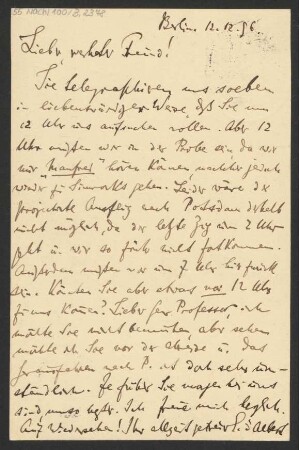 55 NACHL 100/2, 2348
Berlin. 12.12.96.
Lieber verehrter Freund!
Sie telegraphiren uns soeben
in liebenswürdiger Weise, daß Sie uns
12 Uhr aufsuchen wollen. Aber 12
Uhr müßten wir in der Probe sein, da wir
nur "Manfred" hören können, nachher jedoch
wieder zu gehen. Leider wäre der
projectirte Ausflug nach Potsdam deshalb
nicht möglich, da der letzte Zug um 2 Uhr
geht u. wir so früh nicht fortkommen.
Außerdem müßten wir um 7 Uhr hier zurück
sein. Können Sie aber etwas vor 12 Uhr
zu uns kommen? Lieber Herr Professor, ich
möchte Sie nicht bemühen, aber sehen
möchte ich Sie vor der Abreise u. das
nach P. ist doch sehr um-
ständlich. Je früher Sie morgen bei uns
sind, umso besser. Ich freue mich
Auf Wiedersehen! Ihr allzeit getreuer